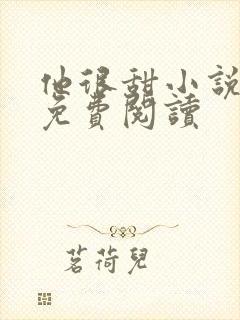 他很甜小説
免費閱讀
茗荷兒